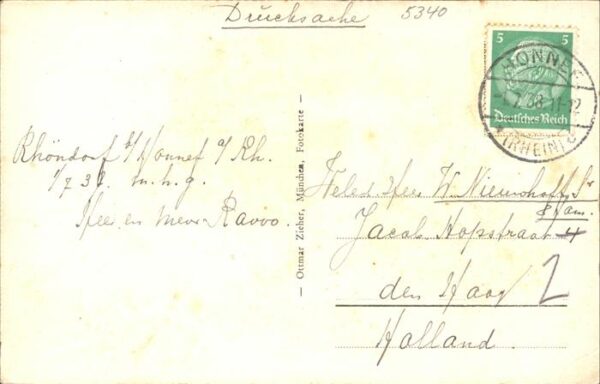 Drucksache
5340
5 5
Deutsches Reich
HONNEF
(RHEIN)
Rhöndorf b/Honnef a/Rh.
1/7 38. m.h.g.
Heer en Mevr Ravoo.
— Ottmar Zieher, München, Fotokarte —
Weled. Heer W. Nieuwhoff Sr
& fam.
Jacob Hopstraat 4
2
den Haag
Holland.